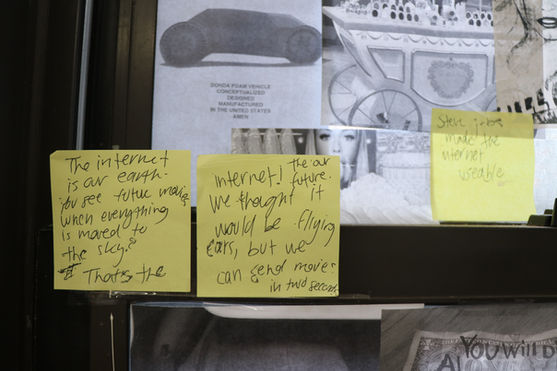 DONDA FOAM VEHICLE
CONCEPTUALIZED
DESIGNED
MANUFACTURED
IN THE UNITED STATES
AMEN
Steve jobs
made the
internet
useable
The internet
is our earth.
You see future movies
when everything
is moved to
the sky?
That's the
internet! The our
future.
We thought it
would be flying
cars, but we
can send movies
in two seconds
YOU WILL D